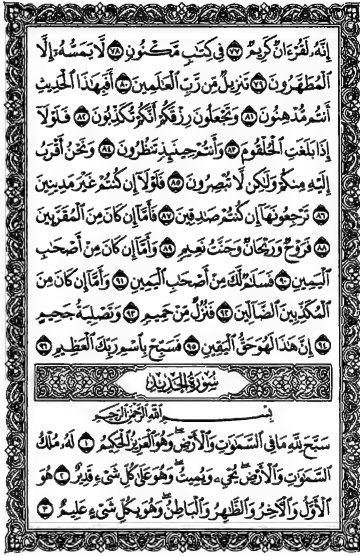 إِنَّهُۥ لَقُرْءَانٌ كَرِيمٌ ٧٧ فِي كِتَٰبٍ مَّكْنُونٍ ٧٨ لَّا يَمَسُّهُۥٓ إِلَّا
ٱلْمُطَهَّرُونَ ٧٩ تَنزِيلٌ مِّن رَّبِّ ٱلْعَٰلَمِينَ ٨٠ أَفَبِهَٰذَا ٱلْحَدِيثِ
أَنتُم مُّدْهِنُونَ ٨١ وَتَجْعَلُونَ رِزْقَكُمْ أَنَّكُمْ تُكَذِّبُونَ ٨٢ فَلَوْلَآ
إِذَا بَلَغَتِ ٱلْحُلْقُومَ ٨٣ وَأَنتُمْ حِينَئِذٍ تَنظُرُونَ ٨٤ وَنَحْنُ أَقْرَبُ
إِلَيْهِ مِنكُمْ وَلَٰكِن لَّا تُبْصِرُونَ ٨٥ فَلَوْلَآ إِن كُنتُمْ غَيْرَ مَدِينِينَ
٨٦ تَرْجِعُونَهَآ إِن كُنتُمْ صَٰدِقِينَ ٨٧ فَأَمَّآ إِن كَانَ مِنَ ٱلْمُقَرَّبِينَ
٨٨ فَرَوْحٌ وَرَيْحَانٌ وَجَنَّتُ نَعِيمٍ ٨٩ وَأَمَّآ إِن كَانَ مِنْ أَصْحَٰبِ
ٱلْيَمِينِ ٩٠ فَسَلَٰمٌ لَّكَ مِنْ أَصْحَٰبِ ٱلْيَمِينِ ٩١ وَأَمَّآ إِن كَانَ مِنَ
ٱلْمُكَذِّبِينَ ٱلضَّآلِّينَ ٩٢ فَنُزُلٌ مِّنْ حَمِيمٍ ٩٣ وَتَصْلِيَةُ جَحِيمٍ
٩٤ إِنَّ هَٰذَا لَهُوَ حَقُّ ٱلْيَقِينِ ٩٥ فَسَبِّحْ بِٱسْمِ رَبِّكَ ٱلْعَظِيمِ ٩٦
سُورَةُ الحَدِيدِ
بِسْمِ ٱللَّهِ ٱلرَّحْمَٰنِ ٱلرَّحِيمِ
سَبَّحَ لِلَّهِ مَا فِي ٱلسَّمَٰوَٰتِ وَٱلْأَرْضِ وَهُوَ ٱلْعَزِيزُ ٱلْحَكِيمُ ١ لَهُۥ مُلْكُ
ٱلسَّمَٰوَٰتِ وَٱلْأَرْضِ يُحْيِۦ وَيُمِيتُ وَهُوَ عَلَىٰ كُلِّ شَيْءٍ قَدِيرٌ ٢ هُوَ
ٱلْأَوَّلُ وَٱلْءَاخِرُ وَٱلظَّٰهِرُ وَٱلْبَاطِنُ وَهُوَ بِكُلِّ شَيْءٍ عَلِيمٌ ٣